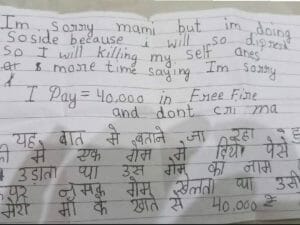 Im sorry mami but im doing
soside because i will so dipres
so I will killing my self ones
more time saying Im sorry
I Pay = 40,000 in Free Fire
and dont cri ma
यह बात मे बताने जा रहा
की मे एक गेम मे दिया पैसे
उड़ाता था उस गेम का नाम
पर गेम खेलता था उसी
मेरी माँ के खाते से 40,000